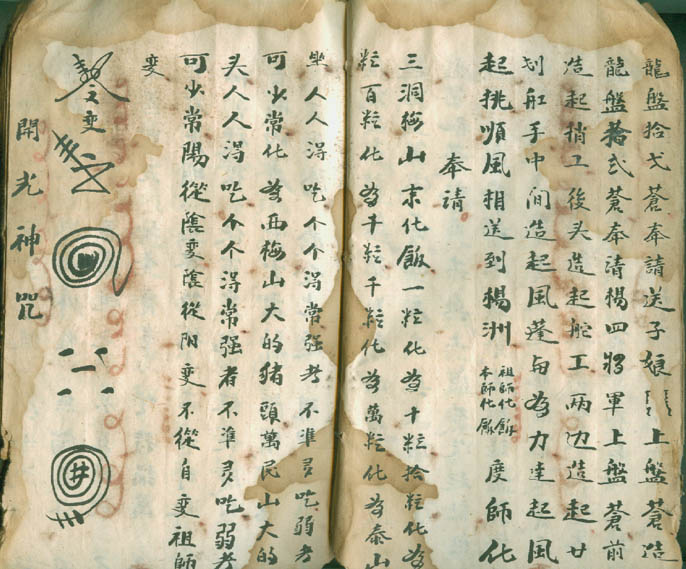 龍盤拾弍蒼奉請送子娘〻上盤蒼造
龍盤拾弍蒼奉请楊四将軍上盤蒼前
造起梢工後头造起舵工兩边造起廿
划舡手中间造起風蓬 為力 起風
起挑順風相送到楊洲 祖師化飯 本師化飯 度師化
奉請
三洞梅山京化飯一粒化為十粒拾粒化為
粒百粒化為千粒千粒化為萬粒化為泰山
人人淂吃个个淂常强者不準灵吃弱者
可少常化為西梅山大的猪頭萬民山大的
头人人淂吃个个淂常强者不準灵吃弱者
可少常陽從陰变陰從阳变不從自变祖師
变
之变
開光神咒